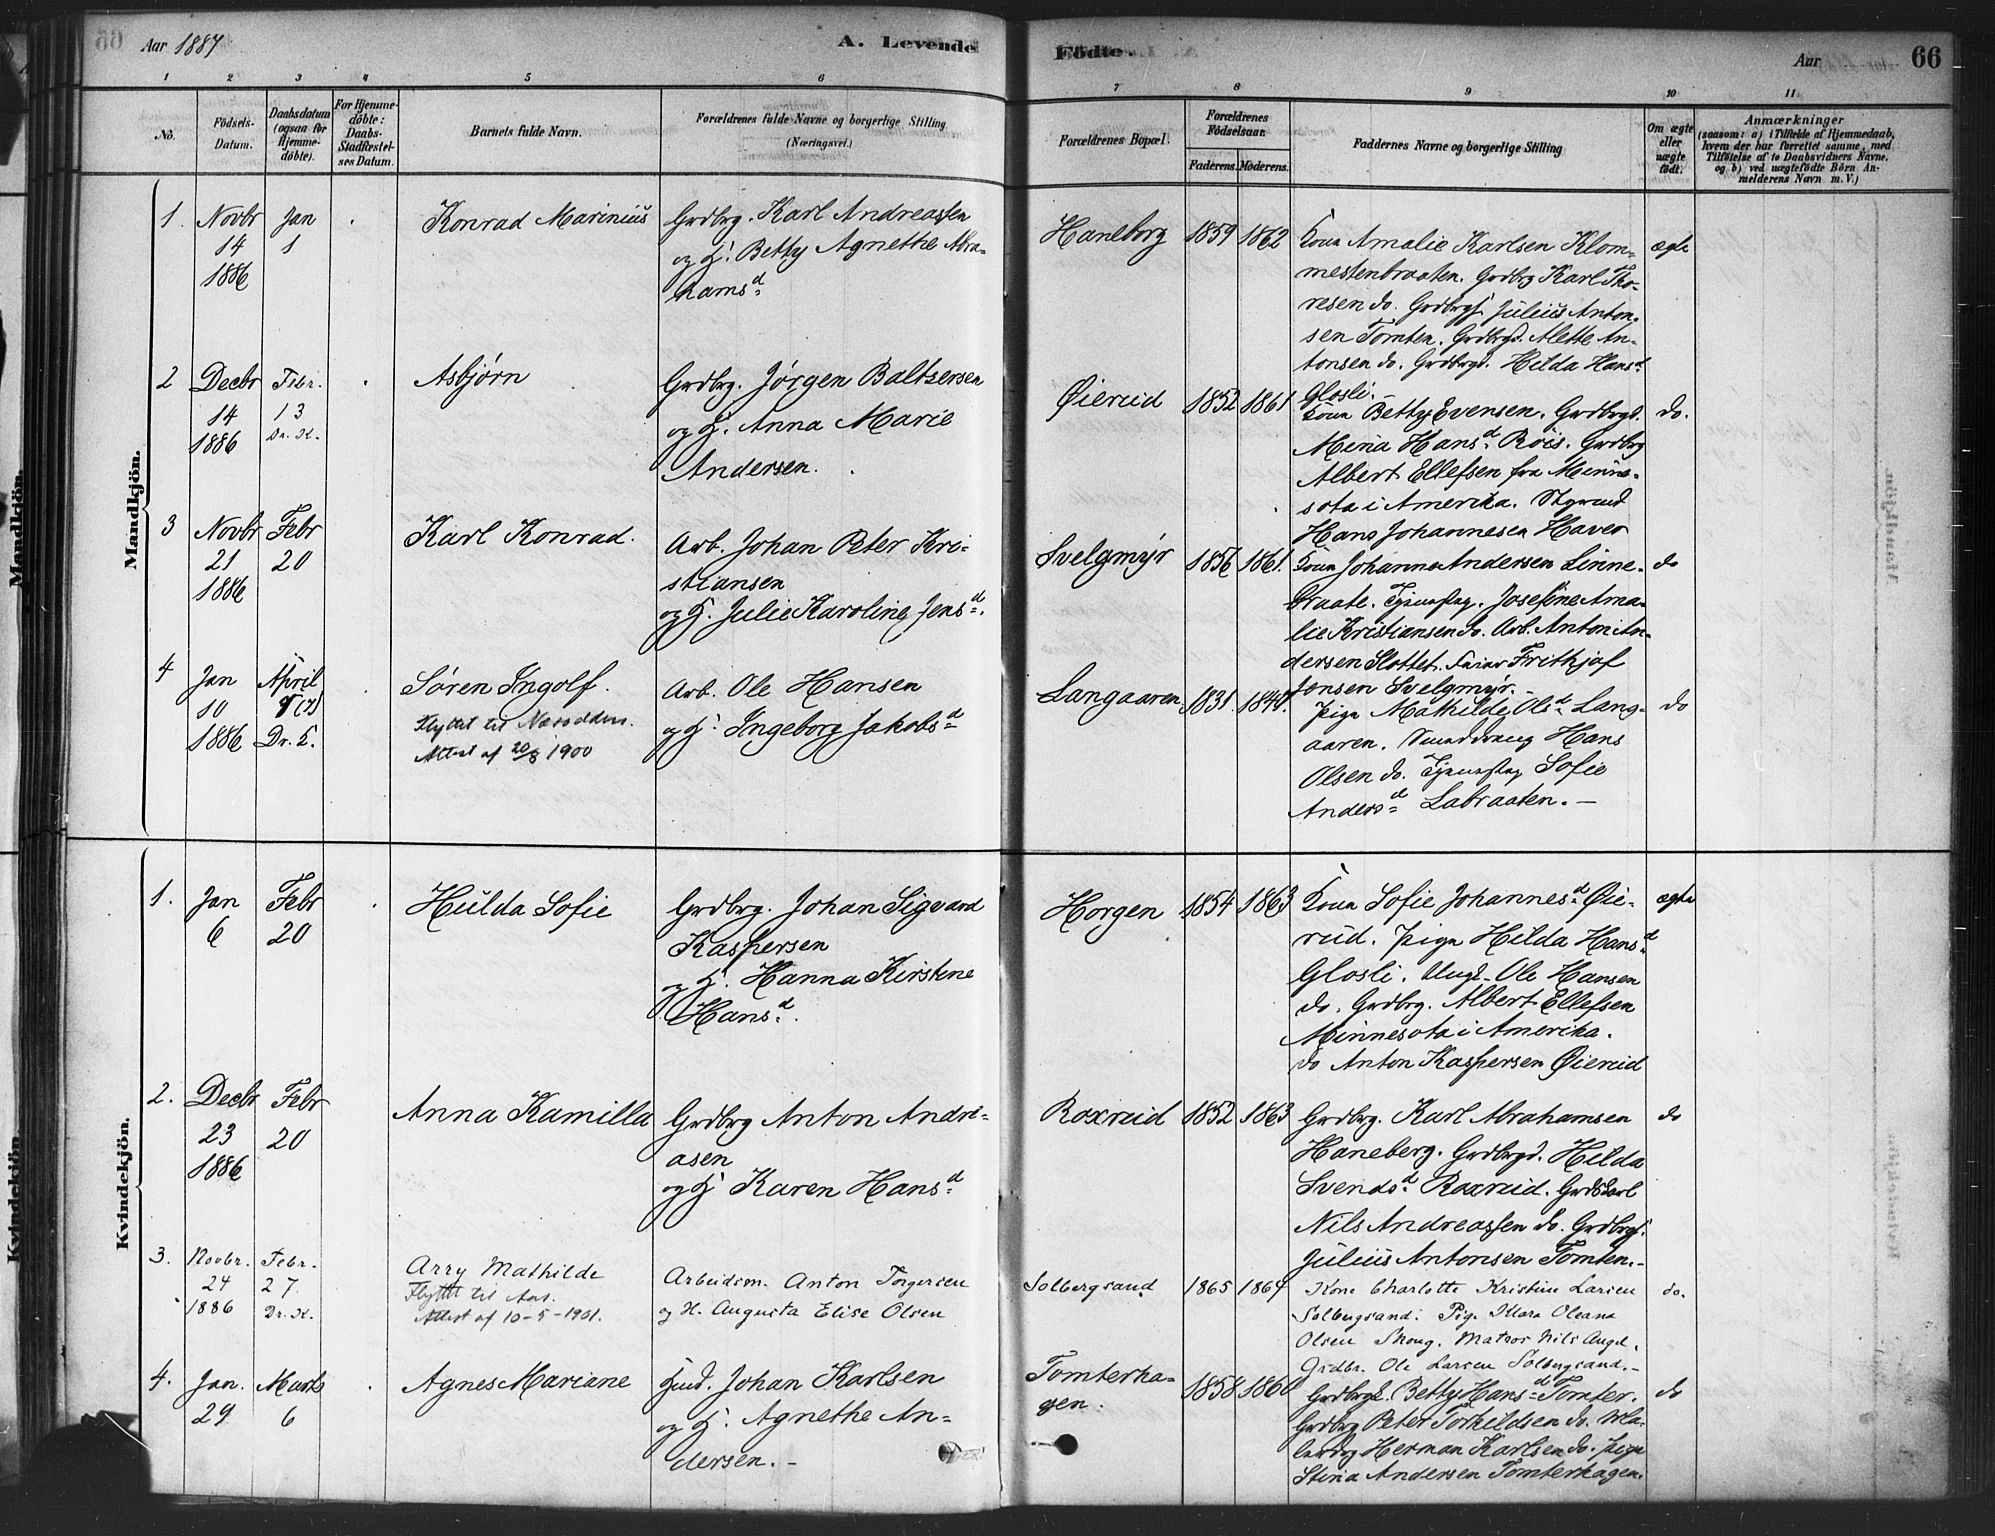 Aar 1887
A. Levende
Födte.
Aar
66
1 2 3 4 5 6 7 8 9 10 11
No.
Födsels-
Datum.
Daabsdatum
(ogsaa for
Hjemme-
döbte).
For Hjemme-
döbte:
Daabs-
Stadfæstel-
ses Datum.
Barnets fulde Navn.
Forældrenes fulde Navne og borgerlige Stilling
(Næringsvei.)
Forældrenes Bopæl.
Forældrenes
Födselsaar.
Faderens. Moderens.
Faddernes Navne og borgerlige Stilling
Om ægte
eller
uægte
födt.
Anmærkninger
(saasom: a) i Tilfælde af Hjemmedaab,
hvem der har forrettet samme, med
Tilföielse af to Daabsvidners Navne,
og b) ved uægtefödte Börn An-
melderens Navn m. V.)
Mandkjön.
1. Novbr
14
1886
Jan
1
Konrad Marinius
Grdbrg. Karl Andreassen
og H. Betty Agnethe Abra-
hamsd.
Haneborg
1859 1862
Kona Amalie Karlsen Klom-
mestenbraaten. Grdbrg Karl Tho-
resen do. Grdbrgs. Julius Anton-
sen Tomten. Grdbrgd. Alette An-
tonsen do. Grdbrgd. Hilda Hansd.
Glosli.
ægte
2 Decbr
14
1886
Febr.
13
Dr. K.
Asbjørn
Grdbrg. Jørgen Baltsersen
og H. Anna Marie
Andersen.
Øierud
1852 1861
Kona Betty Evensen. Grdbrgd.
Mina Hansd. Røis. Grdbrg
Albert Ellefsen fra Minne-
sota i Amerika. Styrmd
Hans Johannesen Haver
do.
3 Novbr
21
1886
Febr
20
Karl Konrad.
Arb. Johan Peter Kri-
stiansen
og H. Julie Karoline Jensd.
Svelgmyr
1856 1861.
Kona Johanna Andersen Linne-
braate. Tjenestpg. Josefine Ama-
lie Kristiansen do. Arb. Anton An-
dersen Slottet. Frithjof
Jonsen Svelgmyr.
do
4 Jan
10
1886
April
(?)
Dr. K.
Søren Ingolf.
Flyttet til Nesodden.
Attest af 20/8 1900
Arb. Ole Hansen
og H. Ingeborg Jakobsd
Langaaren
1831.
Pige Mathilde Olsd. Lang-
aaren. Smeddreng Hans
Olsen do. Tjenestpg Sofie
Andersd Labraaten. —
do
Kvindekjön.
1. Jan
6
Febr
20
Hulda Sofie
Grdbrg. Johan Sigvard
Kaspersen
og H. Hanna Kirstine
Hansd.
Horgen
1854 1863
Kona Sofie Johannesd. Øie-
rud. Pige Hilda Hansd
Glosli. Ungk. Ole Hansen
do. Grdbrg. Albert Ellefsen
Minnesota i Amerika.
do Anton Kaspersen Øierud
ægte
2. Decbr
23
1886
Febr
20
Anna Kamilla
Grdbrg Anton Andre-
asen
og H Karen Hansd
Roxrud
1852 1863
Grdbrg. Karl Abrahamsen
Haneberg. Grdbrgd. Hilda
Svendsd. Roxrud. Grdskarl
Nils Andreassen do. Grdbrgs.
Julius Antonsen Tomten.-
do
3. Novbr.
24
1886
Febr.
27.
Dr. K.
Arry Mathilde
Flyttet til Aas.
Attest af 10-5-1901.
Arbeidsm. Anton Torgersen
og H. Augusta Elise Olsen
Solbergsand
1865 1864
Kone Charlotte Kristine Larsen
Solbergsand. Pige Klara Oleana
Olsen Skoug. Matros Nils Angel.
Grdbr. Ole Larsen Solbergsand.-
do.
4. Jan.
29
Marts
6
Agnes Mariane
Husd. Johan Karlsen
og H. Agnethe An-
dersen. -
Tomterha-
gen.
1858 1860
Betty Hansd. Tomter.
Grdbrg Peter Torkildsen do. Ma-
Herman Karlsen do. Pige
Stina Andersen Tomterhagen.
do